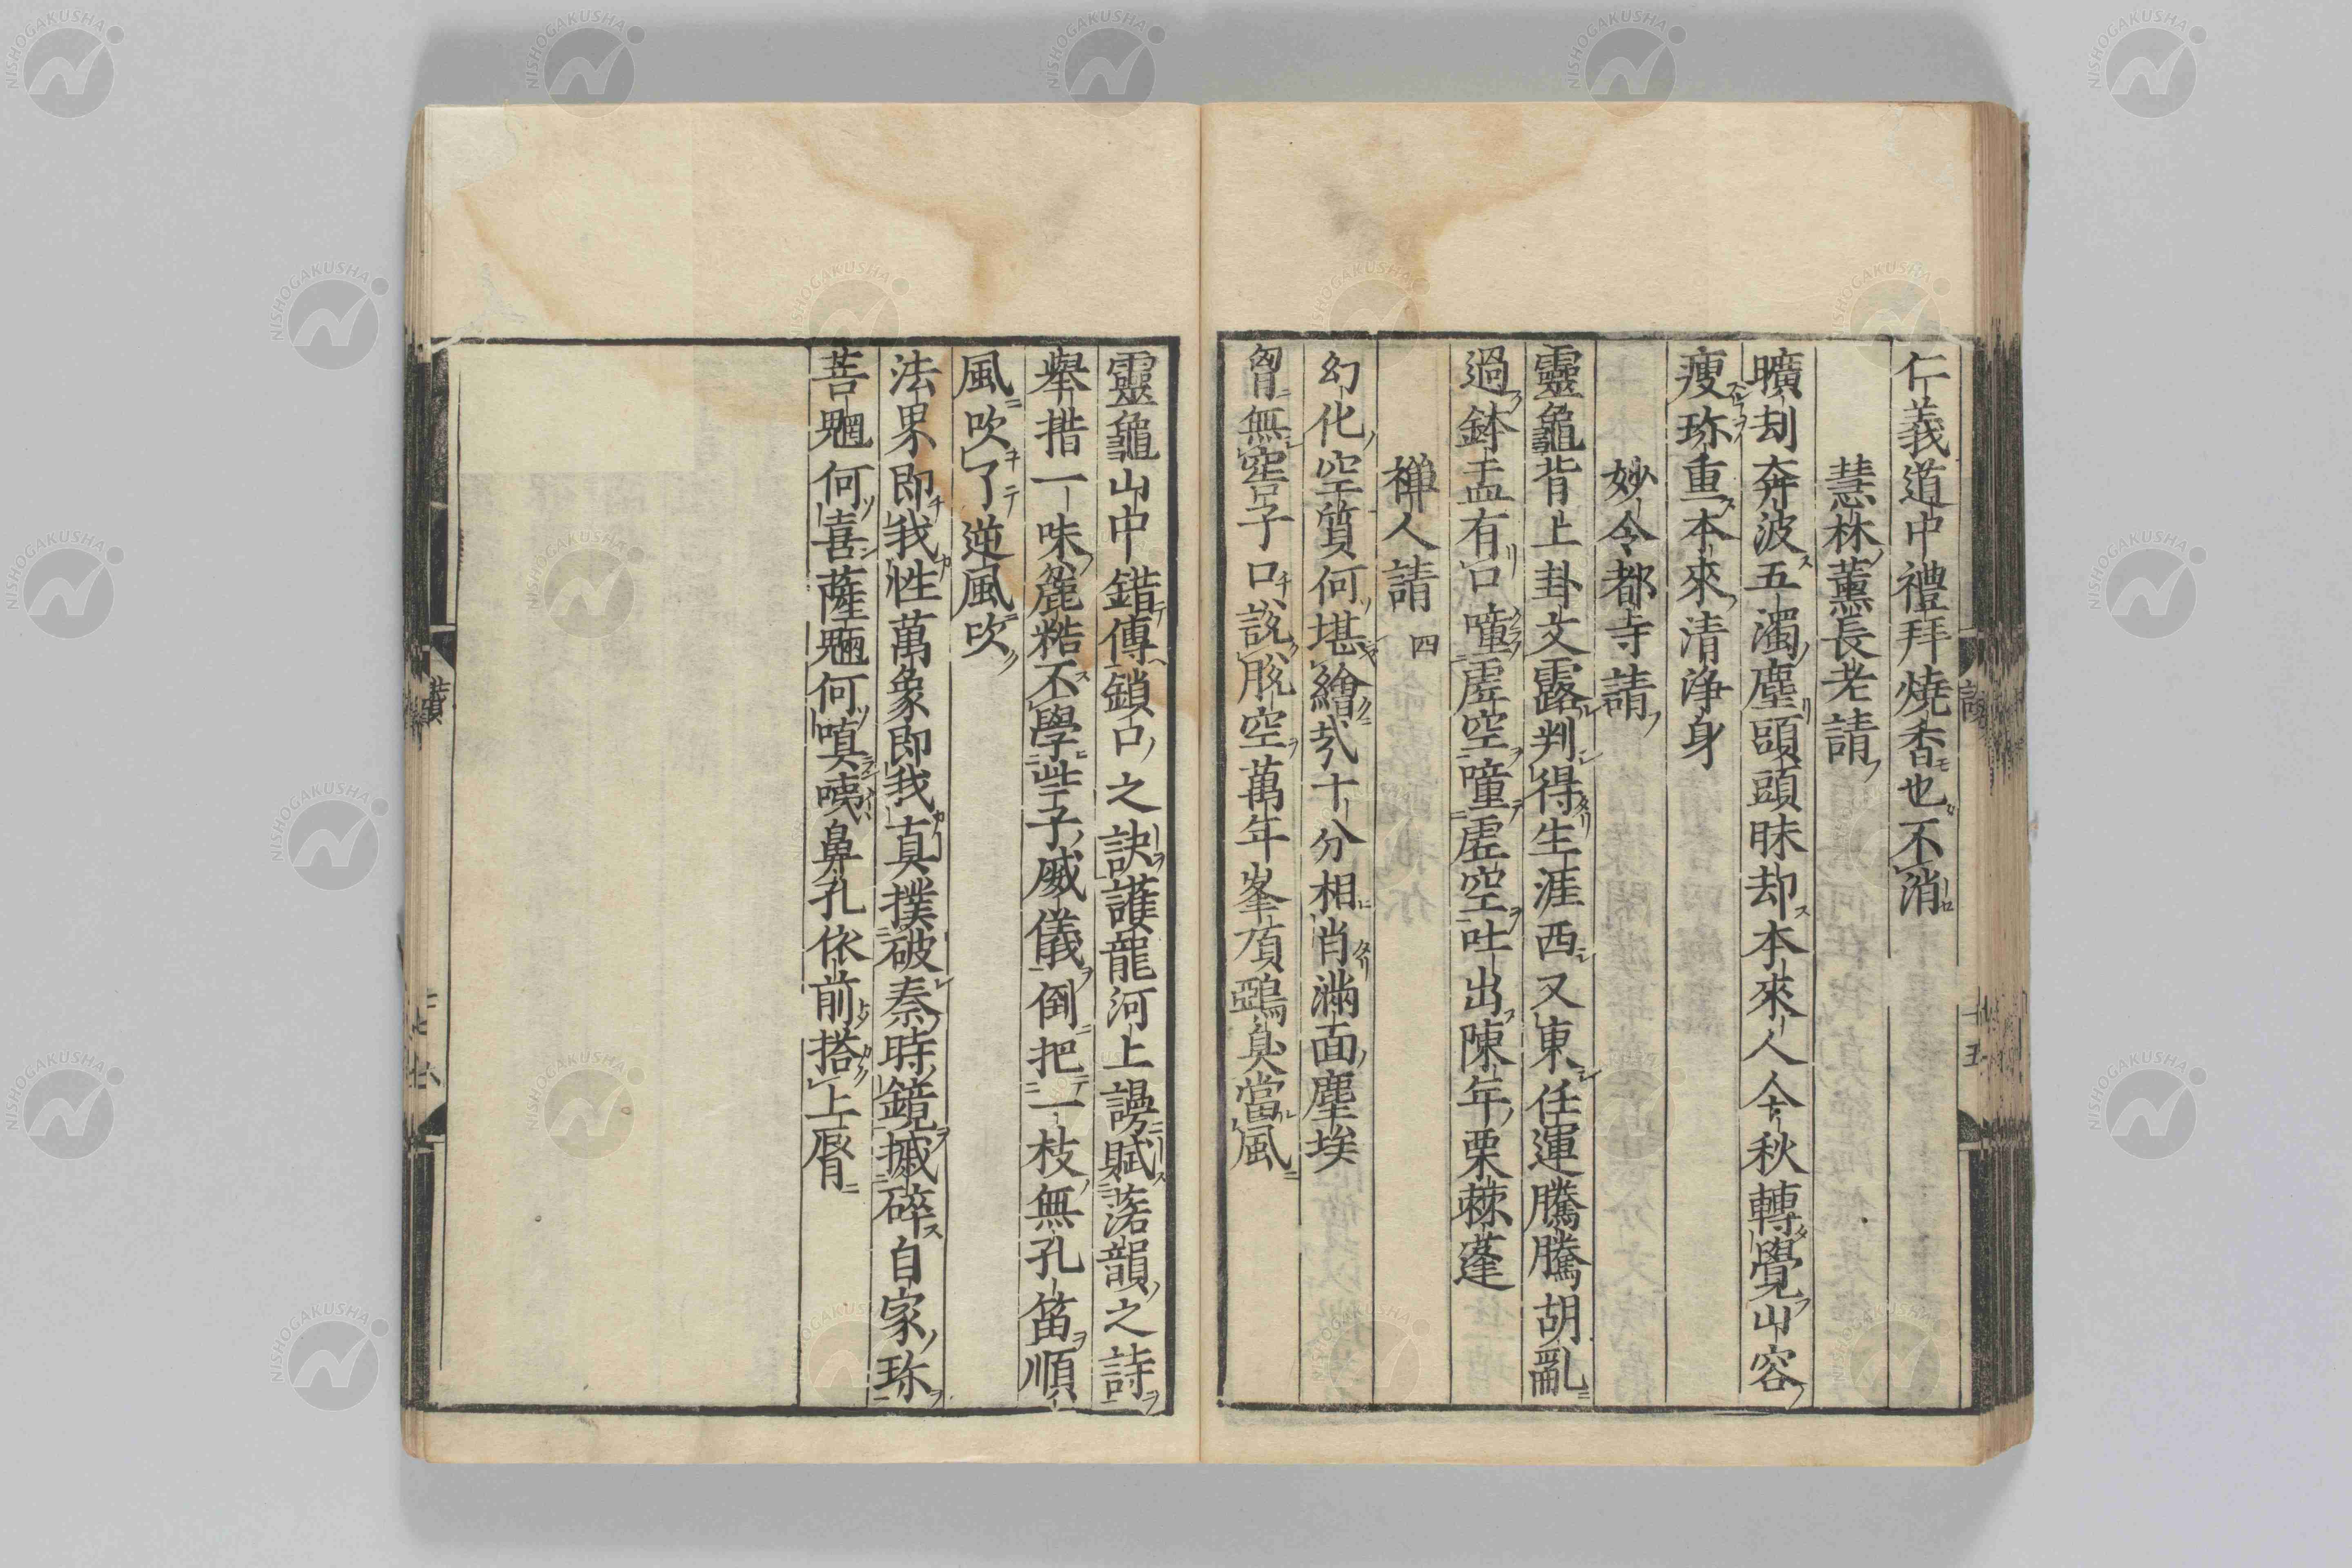 仁義道中禮拜燒香也不消
慧林薰長老請
曠劫奔波五濁塵頭頭昧却本來人今秋轉覺山容
瘦珎重本來清淨身
妙令都寺請
靈龜背上卦文露判得生涯西又東任運騰騰胡亂
過鉢盂有口噇虛空噇虛空吐出陳年栗棘蓬
禅人請 四
幻化空質何堪繪哉十分相肖滿面塵埃
胷無窖子口說脫空萬年峯頂鵶臭當風
靈龜山中錯傳鎖口之訣護龍河上謾賦落韻之詩
舉措一味麁糙不學些子威儀倒把一枝無孔笛順
風吹了逆風吹
法界即我性萬象即我真撲破秦時鏡搣碎自家珎
菩魍何喜薩魎何嗔咦鼻孔依前搭上脣
NISHOGAKUSHA